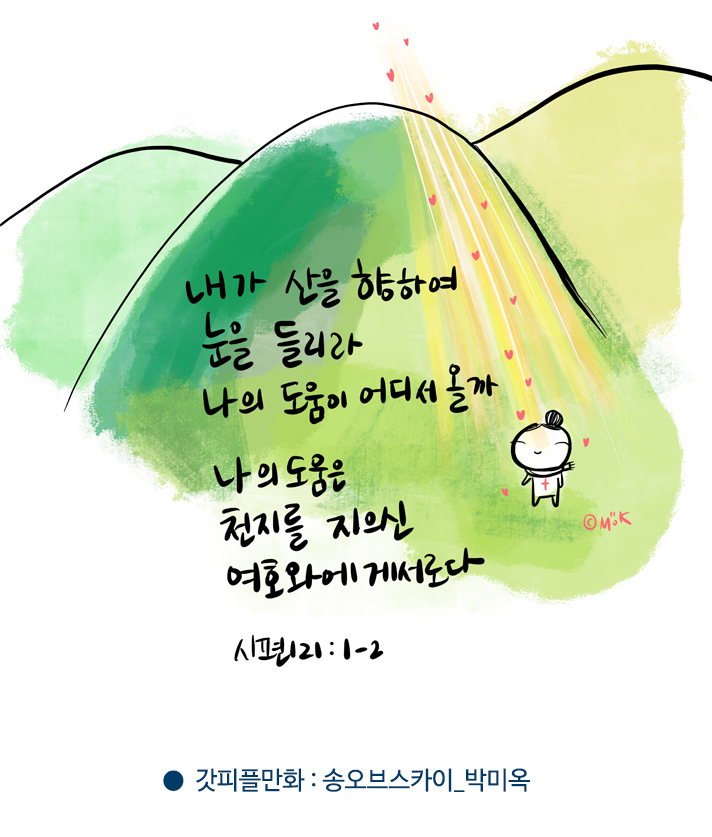 내가 산을 향하여
눈을 들리라
나의 도움이 어디서 올까
나의 도움은
천지를 지의신
여호와에게서로다
시편121:1-2
©MoK
● 갓피플만화 : 송오브스카이_박미옥